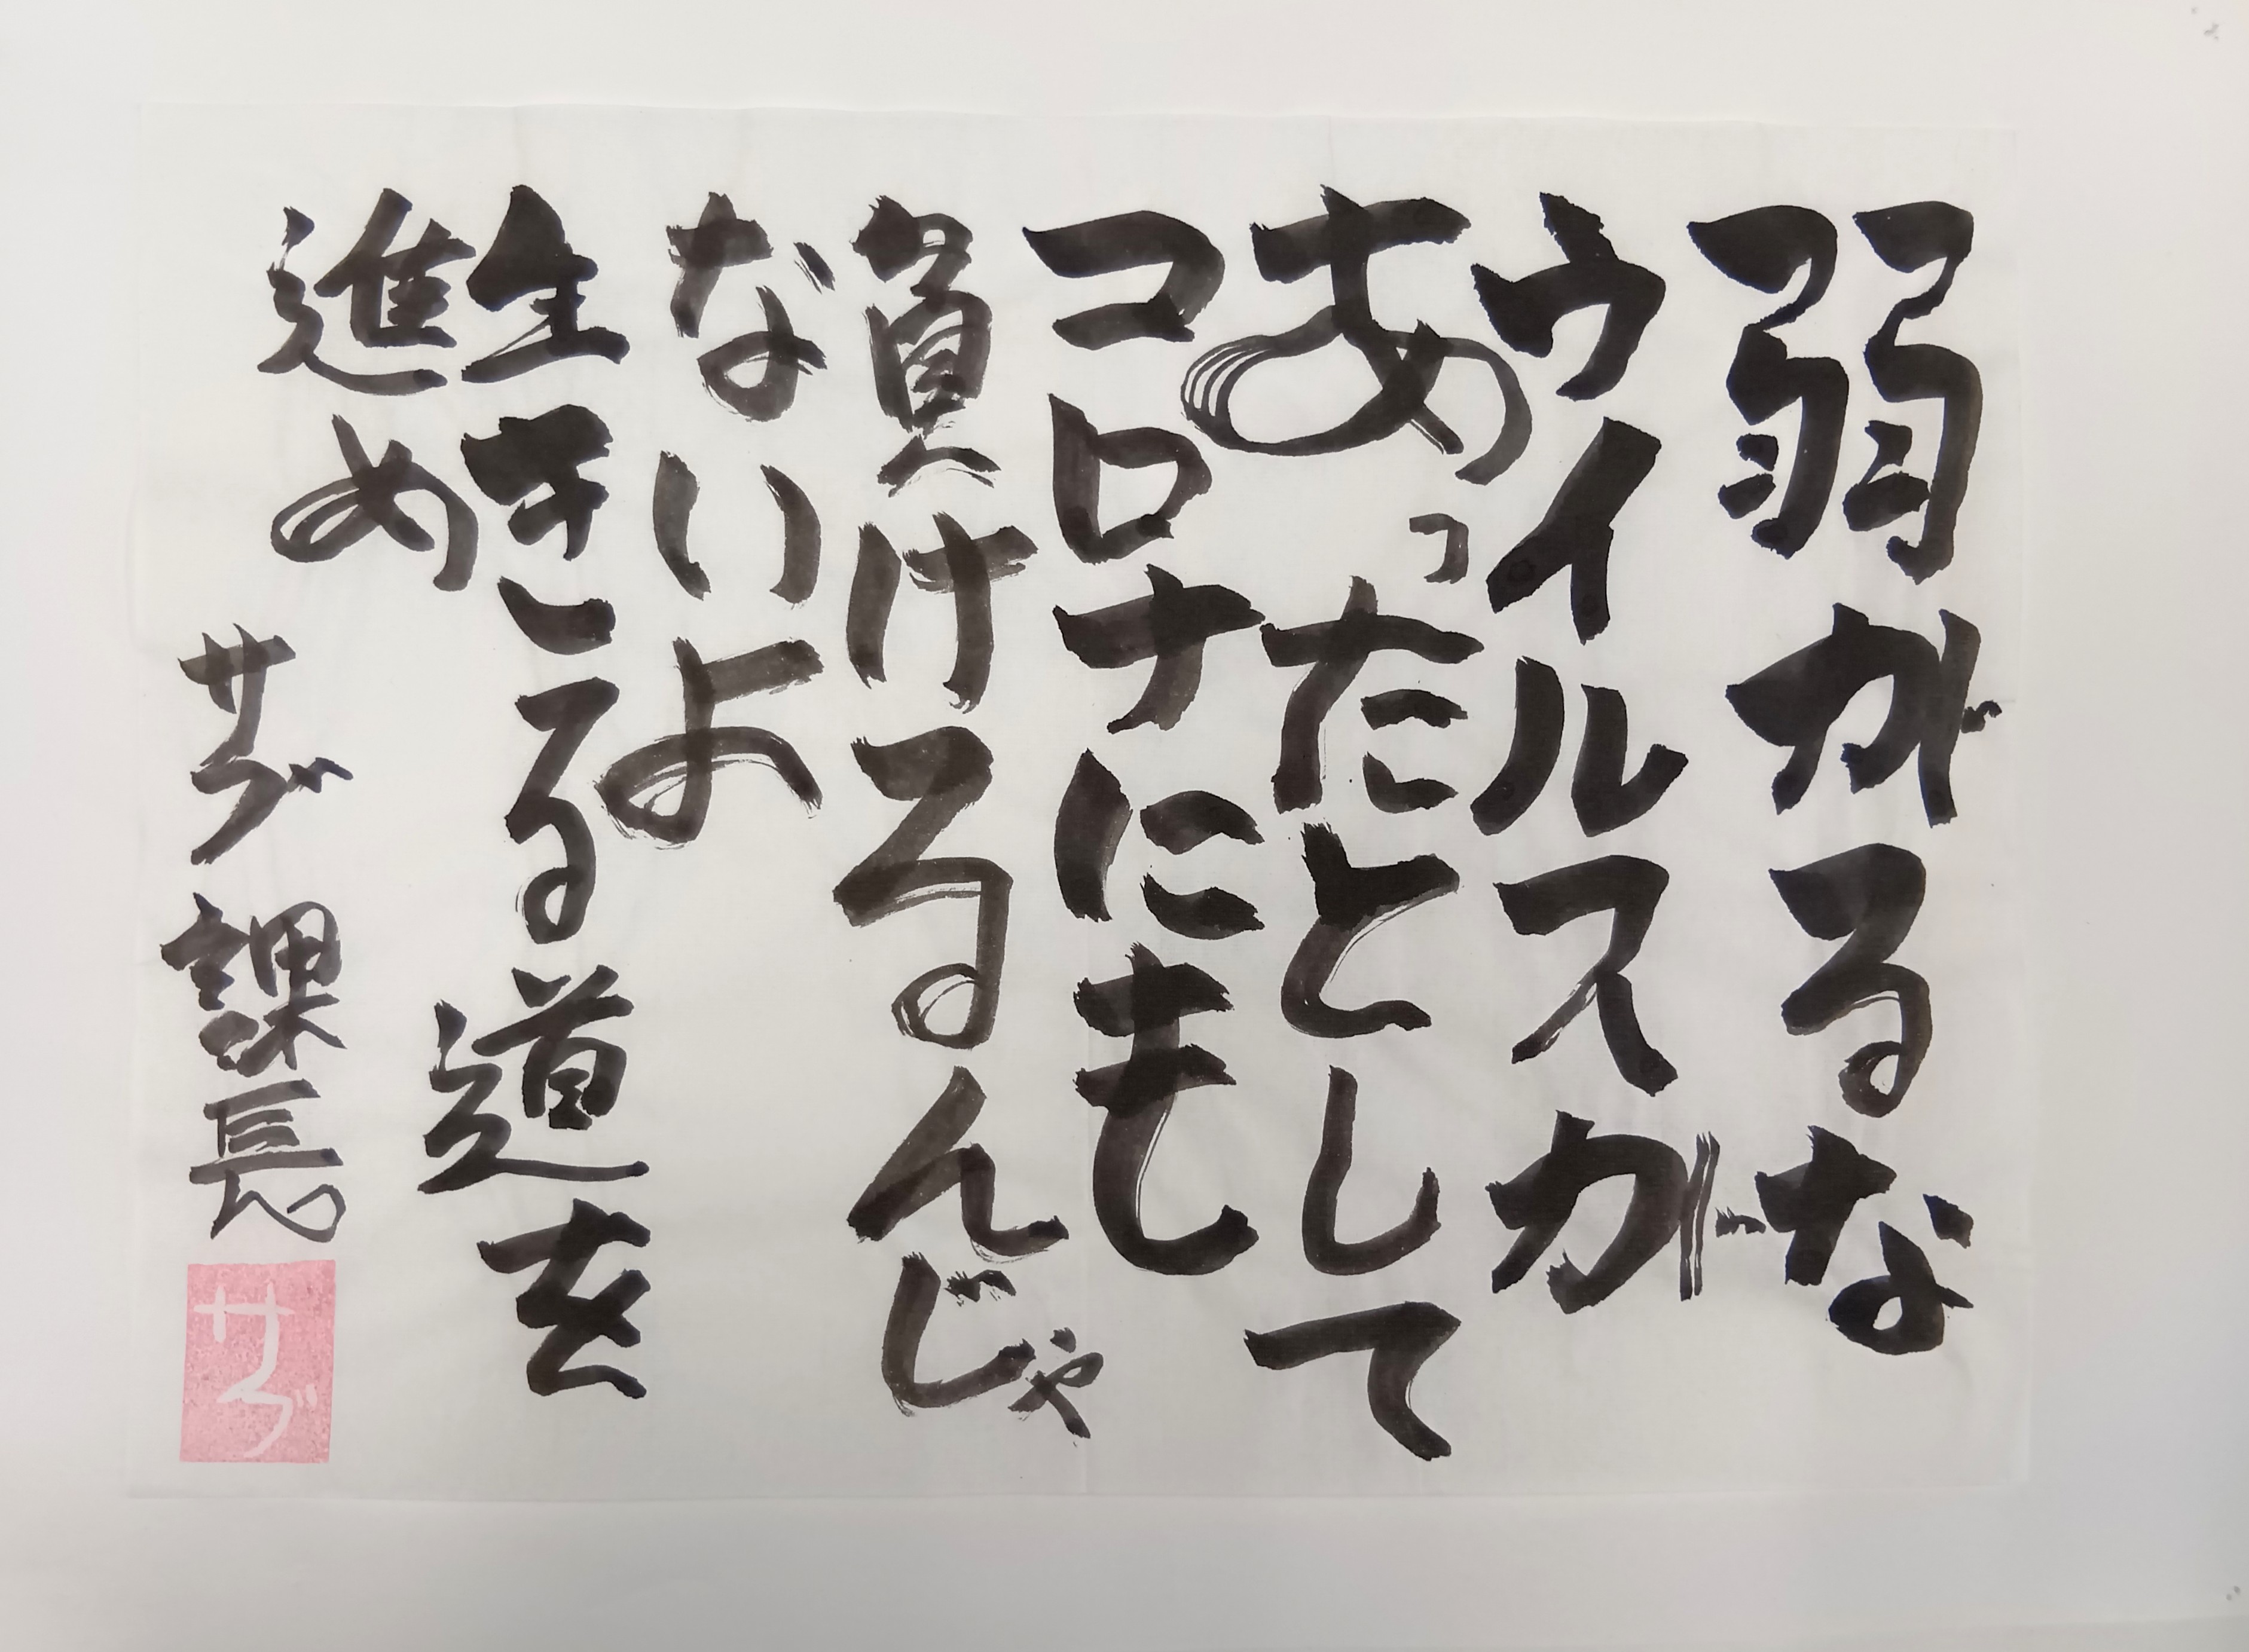 弱がるな
ウイルスが
あったとして
コロナにも
負けるんじゃ
ないよ
生きる道を
進め
サブ課長
サブ